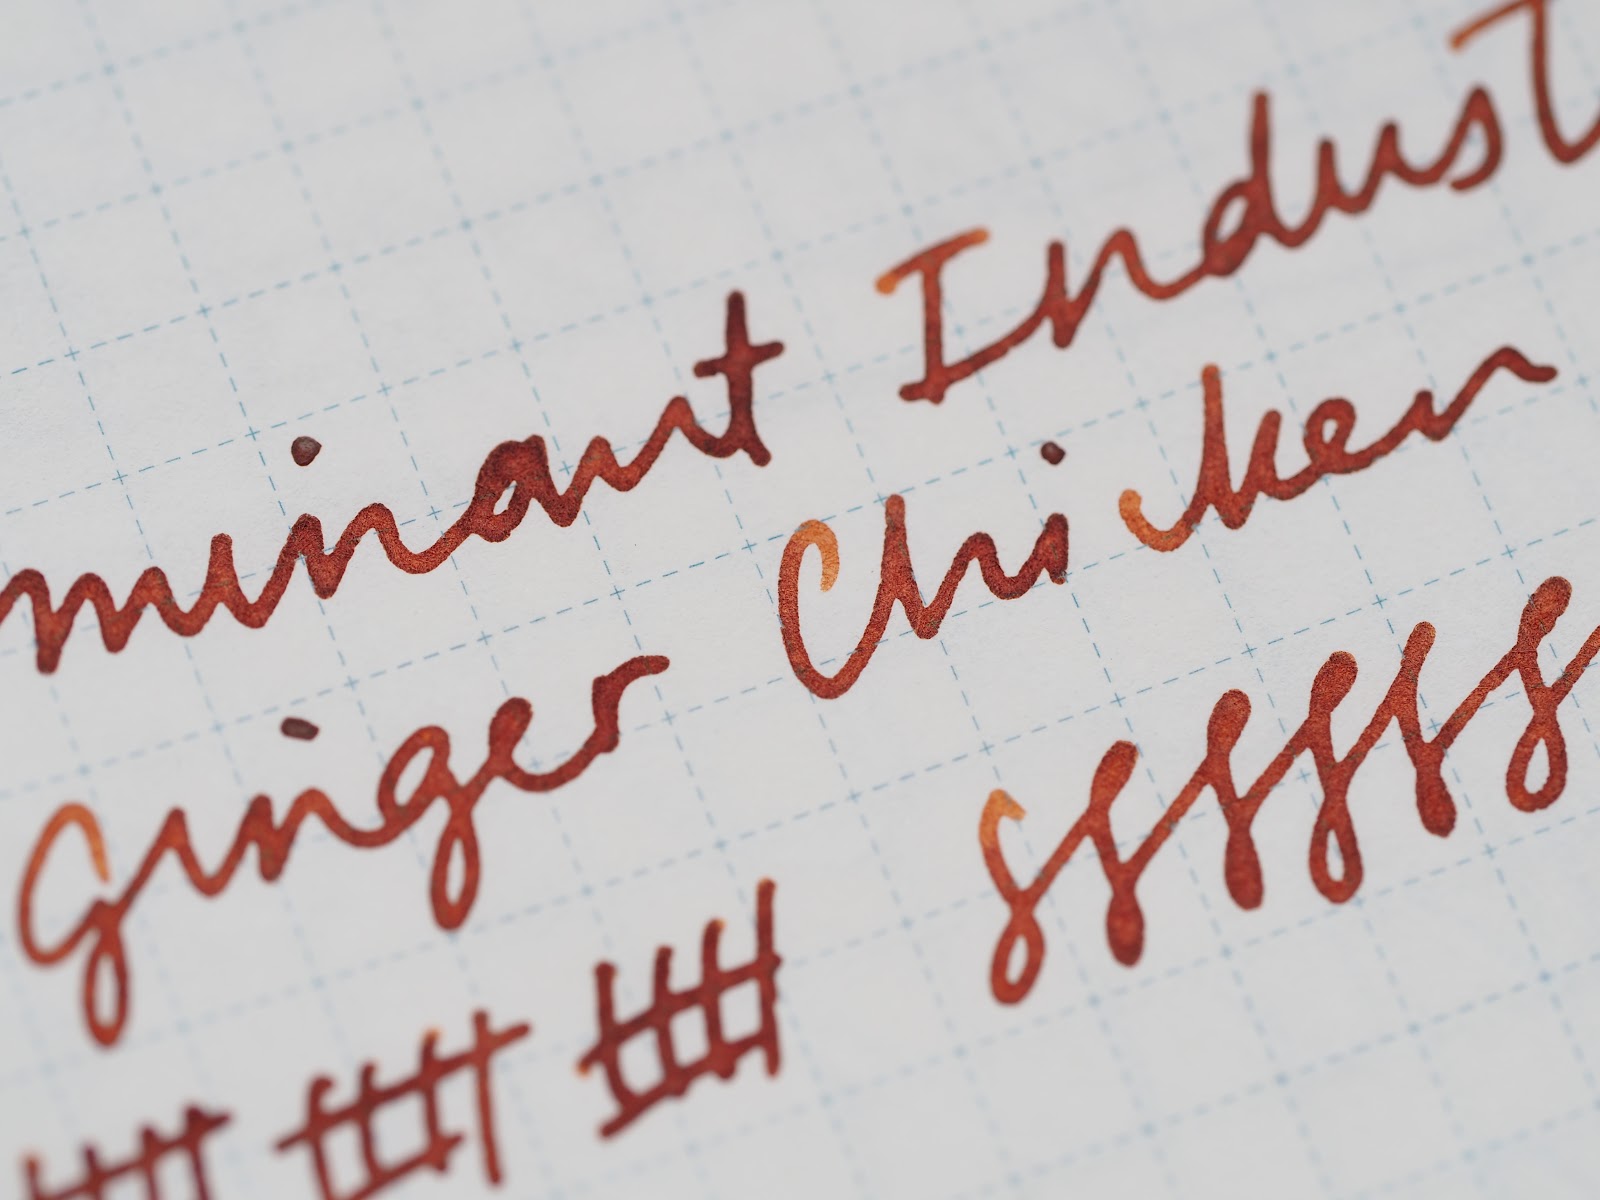 minant Indust
Ginger Chicken